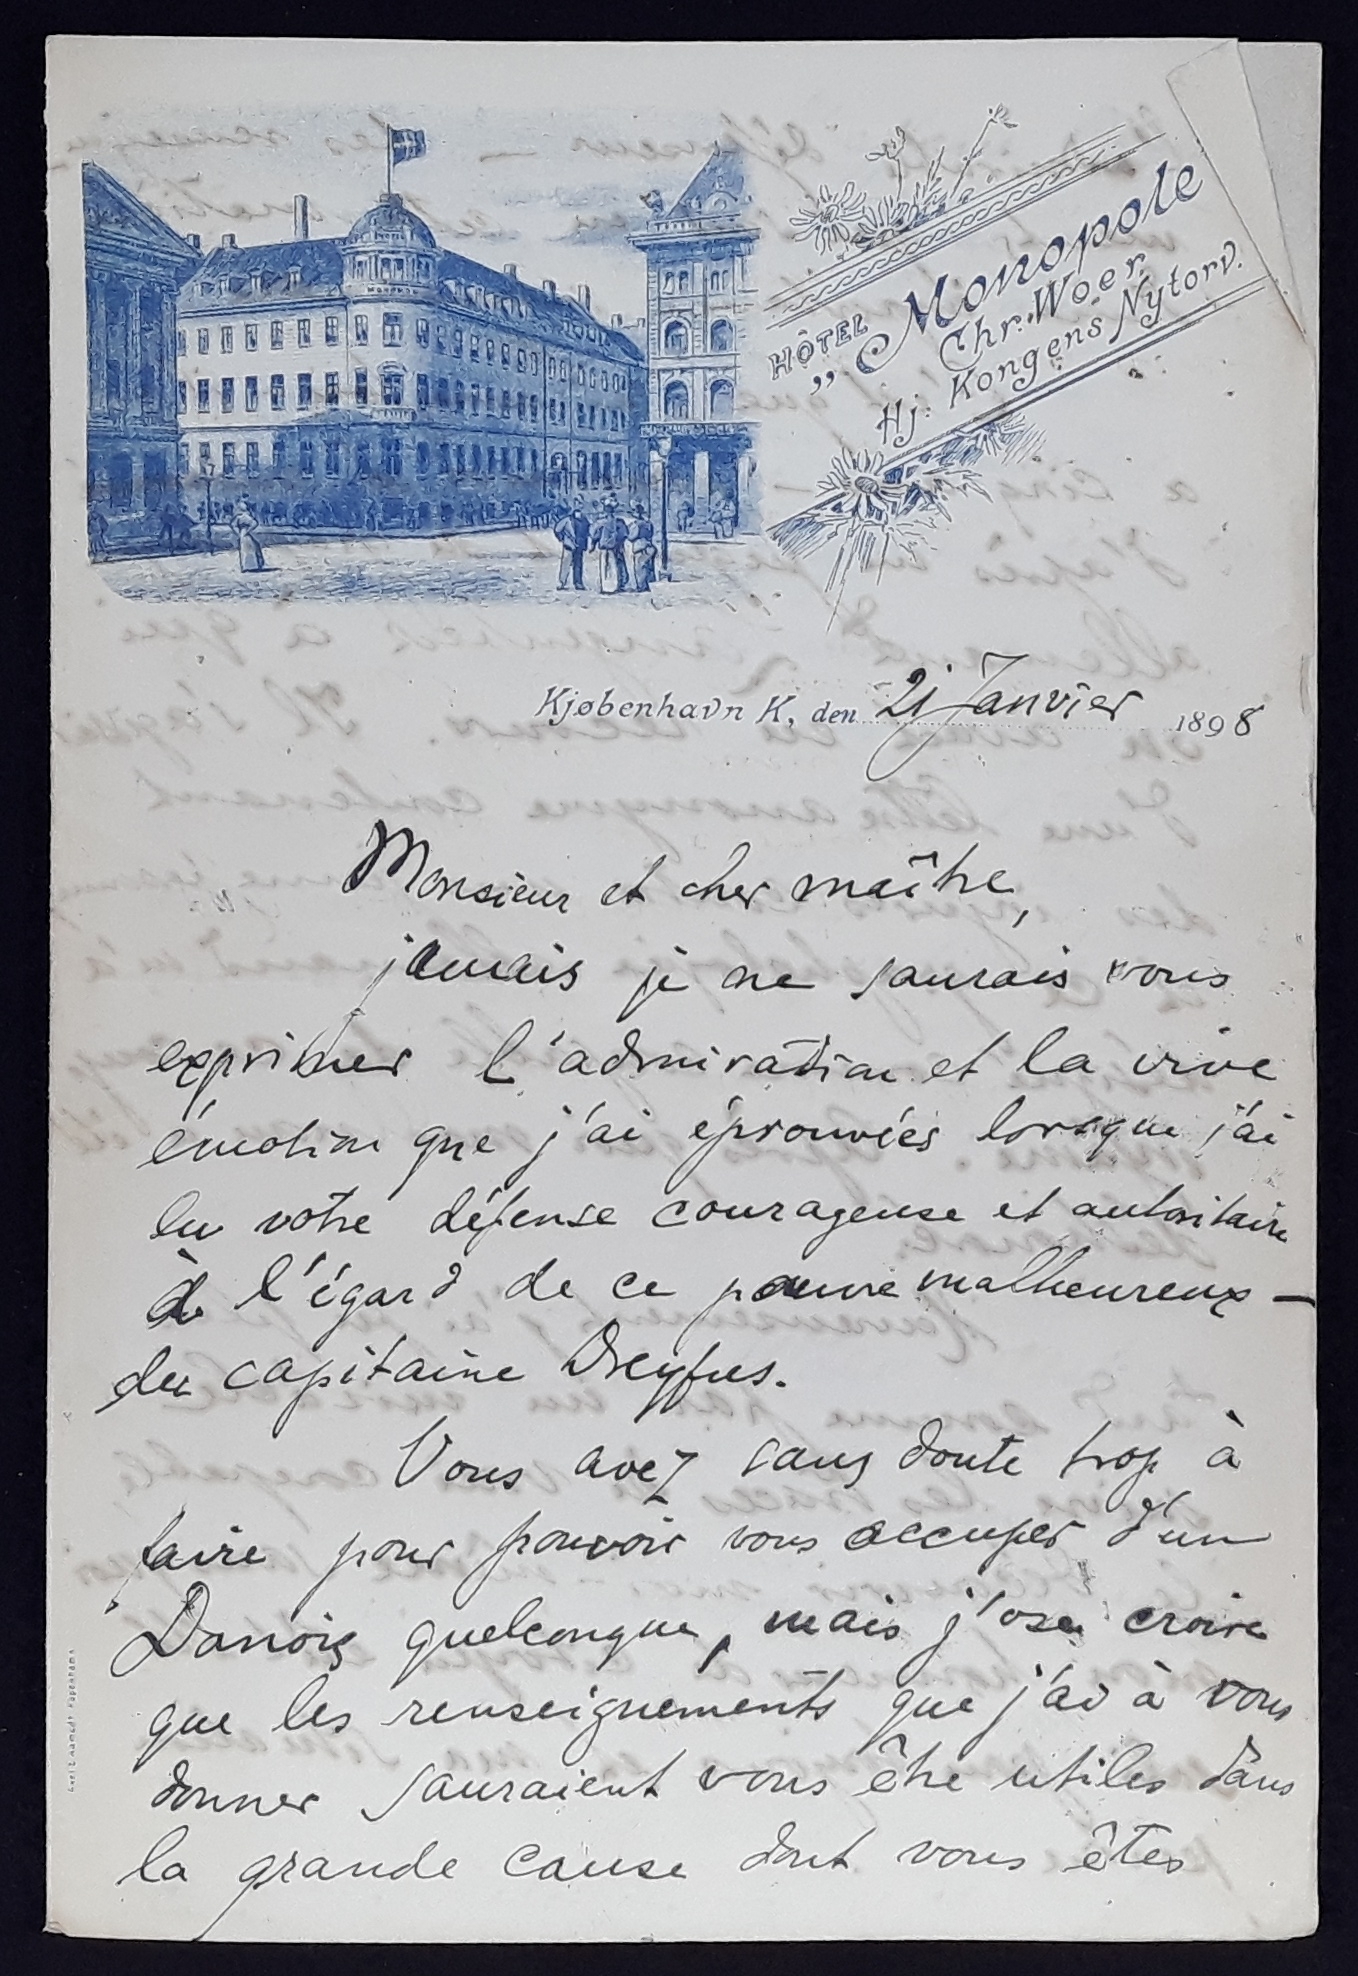 HÔTEL
„Monopole
Chr. Woer
Hj: Kongens Nytorv.
MONOPOL
Kjøbenhavn K, den 21 Janvier 1898
Monsieur et cher maître,
jamais je ne saurais vous
exprimer l'admiration et la vive
émotion que j'ai éprouvées lorsque j'ai
lu votre défense courageuse et autoritaire
à l'égard de ce pauvre malheureux —
du capitaine Dreyfus.
Vous avez sans doute trop à
faire pour pouvoir vous occuper d'un
Danois quelconque, mais j'ose croire
que les renseignements que j'ai à vous
donner sauraient vous être utiles dans
la grande cause dont vous êtes